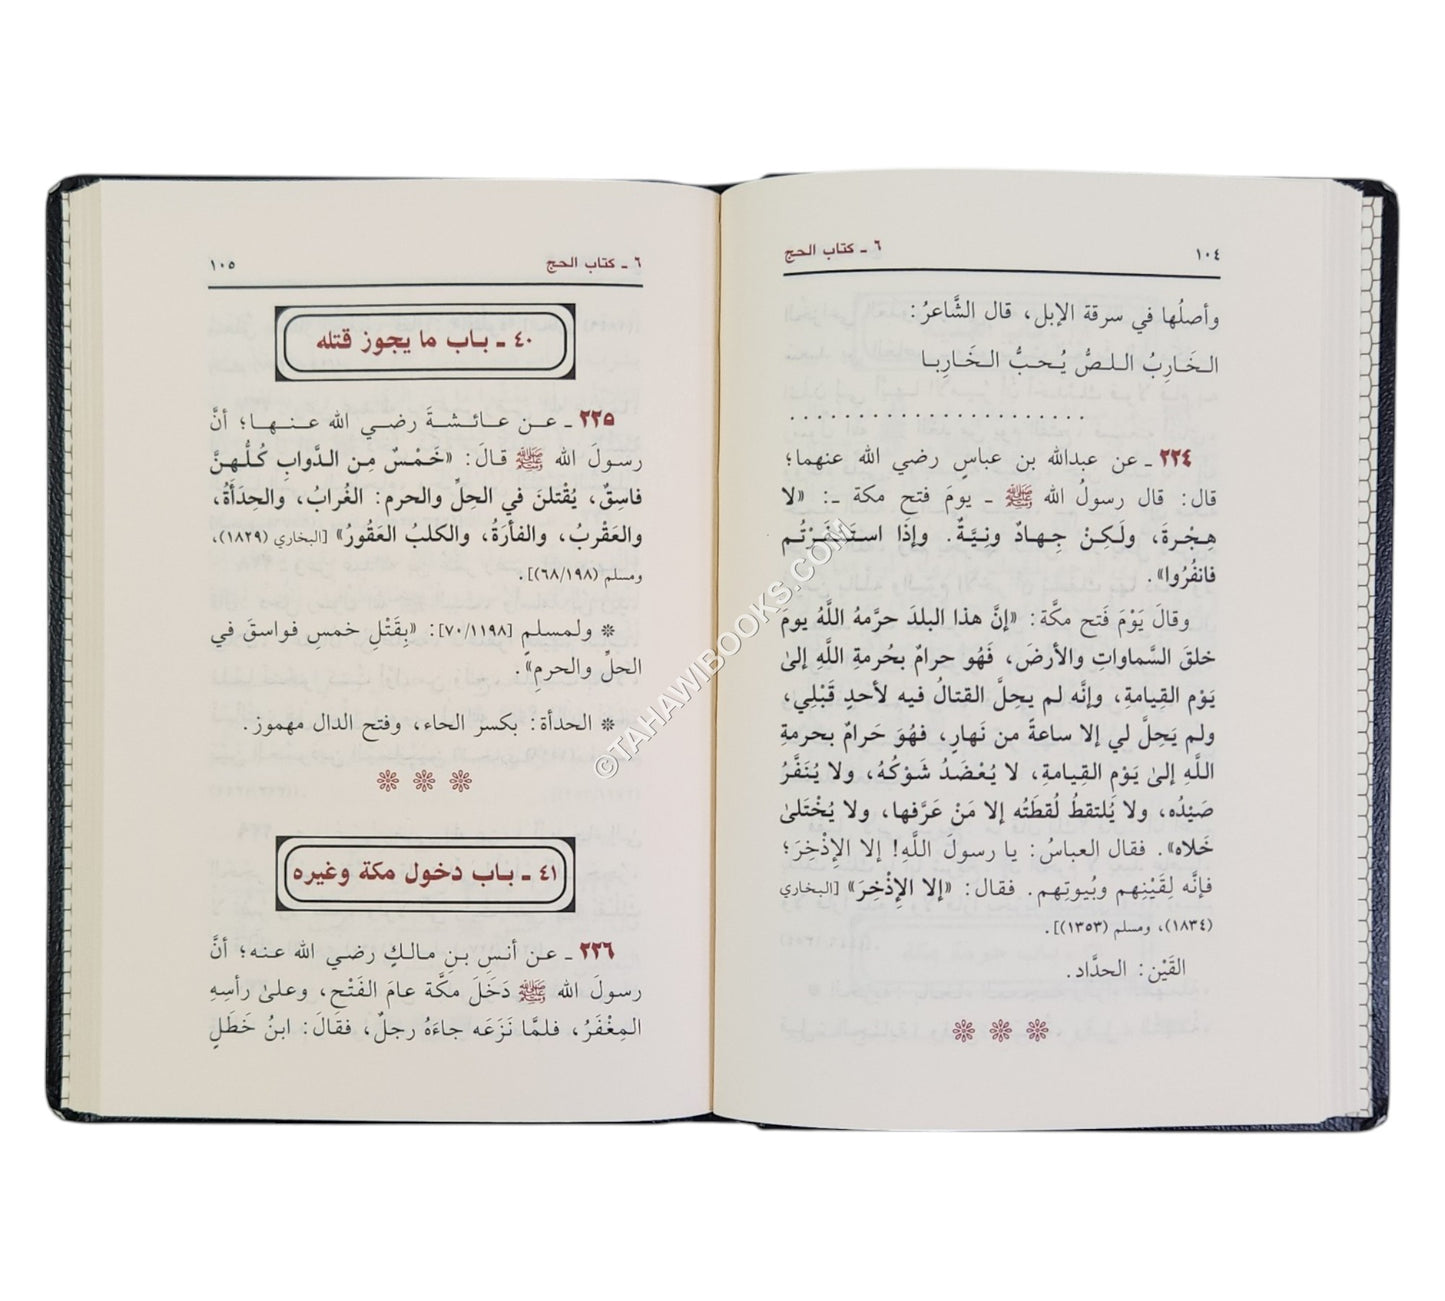 ١٠٤
٦ ـ كتاب الحج
وأصلُها في سرقة الإبل، قال الشَّاعرُ:
الـخَـارِبُ الـلـصُّ يُـحـبُّ الـخَـارِبـا
. . . . . . . . . . . . . . . . . . . . . .
٢٢٤ ـ عن عبدالله بن عباسٍ رضي الله عنهما؛
قال: قال رسولُ الله ﷺ ـ يومَ فتح مكة ـ: «لا
هِجْرةَ، ولَكِنْ جِهادٌ ونِيَّةٌ. وإذَا استَنْفَرْتُم
فانفُرُوا».
وقالَ يَوْمَ فَتح مكَّة: «إنَّ هذا البلدَ حرَّمهُ اللَّهُ يومَ
خلقَ السَّماواتِ والأرضَ، فَهُو حرامٌ بحُرمةِ اللَّهِ إلىٰ
يَوْم القِيامةِ، وإنَّه لم يحِلَّ القتالُ فيه لأحدٍ قَبْلِي،
ولم يَحِلَّ لي إلا ساعةً من نَهارٍ، فَهوَ حَرامٌ بحرمةِ
اللَّهِ إلىٰ يَوْم القِيامةِ، لا يُعْضَدُ شَوْكُهُ، ولا يُنَفَّرُ
صَيْدُه، ولا يُلتقطُ لُقطَتُه إلا مَنْ عَرَّفها، ولا يُخْتَلىٰ
خَلاه». فقال العباسُ: يا رسولَ اللَّهِ! إلا الإِذْخِرَ؛
فإنَّه لِقَيْنِهم وبُيوتِهم. فقال: «إلا الإِذْخِرَ» [البخاري
(١٨٣٤)، ومسلم (١٣٥٣)].
القَيْن: الحدَّاد.
٦ ـ كتاب الحج
١٠٥
٤٠ ـ باب ما يجوز قتله
٢٢٥ ـ عـن عـائـشـةَ رضـي الله عـنـهـا؛ أنَّ
رسـولَ الله ﷺ قـالَ: «خَـمْـسٌ مـن الـدَّوابِ كُـلُّـهـنَّ
فاسِقٌ، يُقْتلنَ في الحِلِّ والحرم: الغُرابُ، والحِدَأَةُ،
والعَقْربُ، والفأرَةُ، والكلبُ العَقُورُ» [البخاري (١٨٢٩)،
ومسلم (٦٨/١٩٨)].
❊ ولـمسلمٍ [٧٠/١١٩٨]: «بِقَتْلِ خمسِ فواسقَ في
الحلِّ والحرمِ».
❊ الحدأة: بكسر الحاء، وفتح الدال مهموز.
٤١ ـ بـاب دخول مكة وغيره
٢٢٦ ـ عـن أنـسِ بـنِ مـالـكٍ رضـي الله عـنـه؛ أنَّ
رسـولَ الله ﷺ دَخَلَ مكَّة عامَ الفَتْحِ، وعلىٰ رأسِهِ
المِغْفَرُ، فلمَّا نَزَعَه جاءَهُ رجلٌ، فقالَ: ابنُ خَطَلٍ
©TAHAWIBOOKS.COM